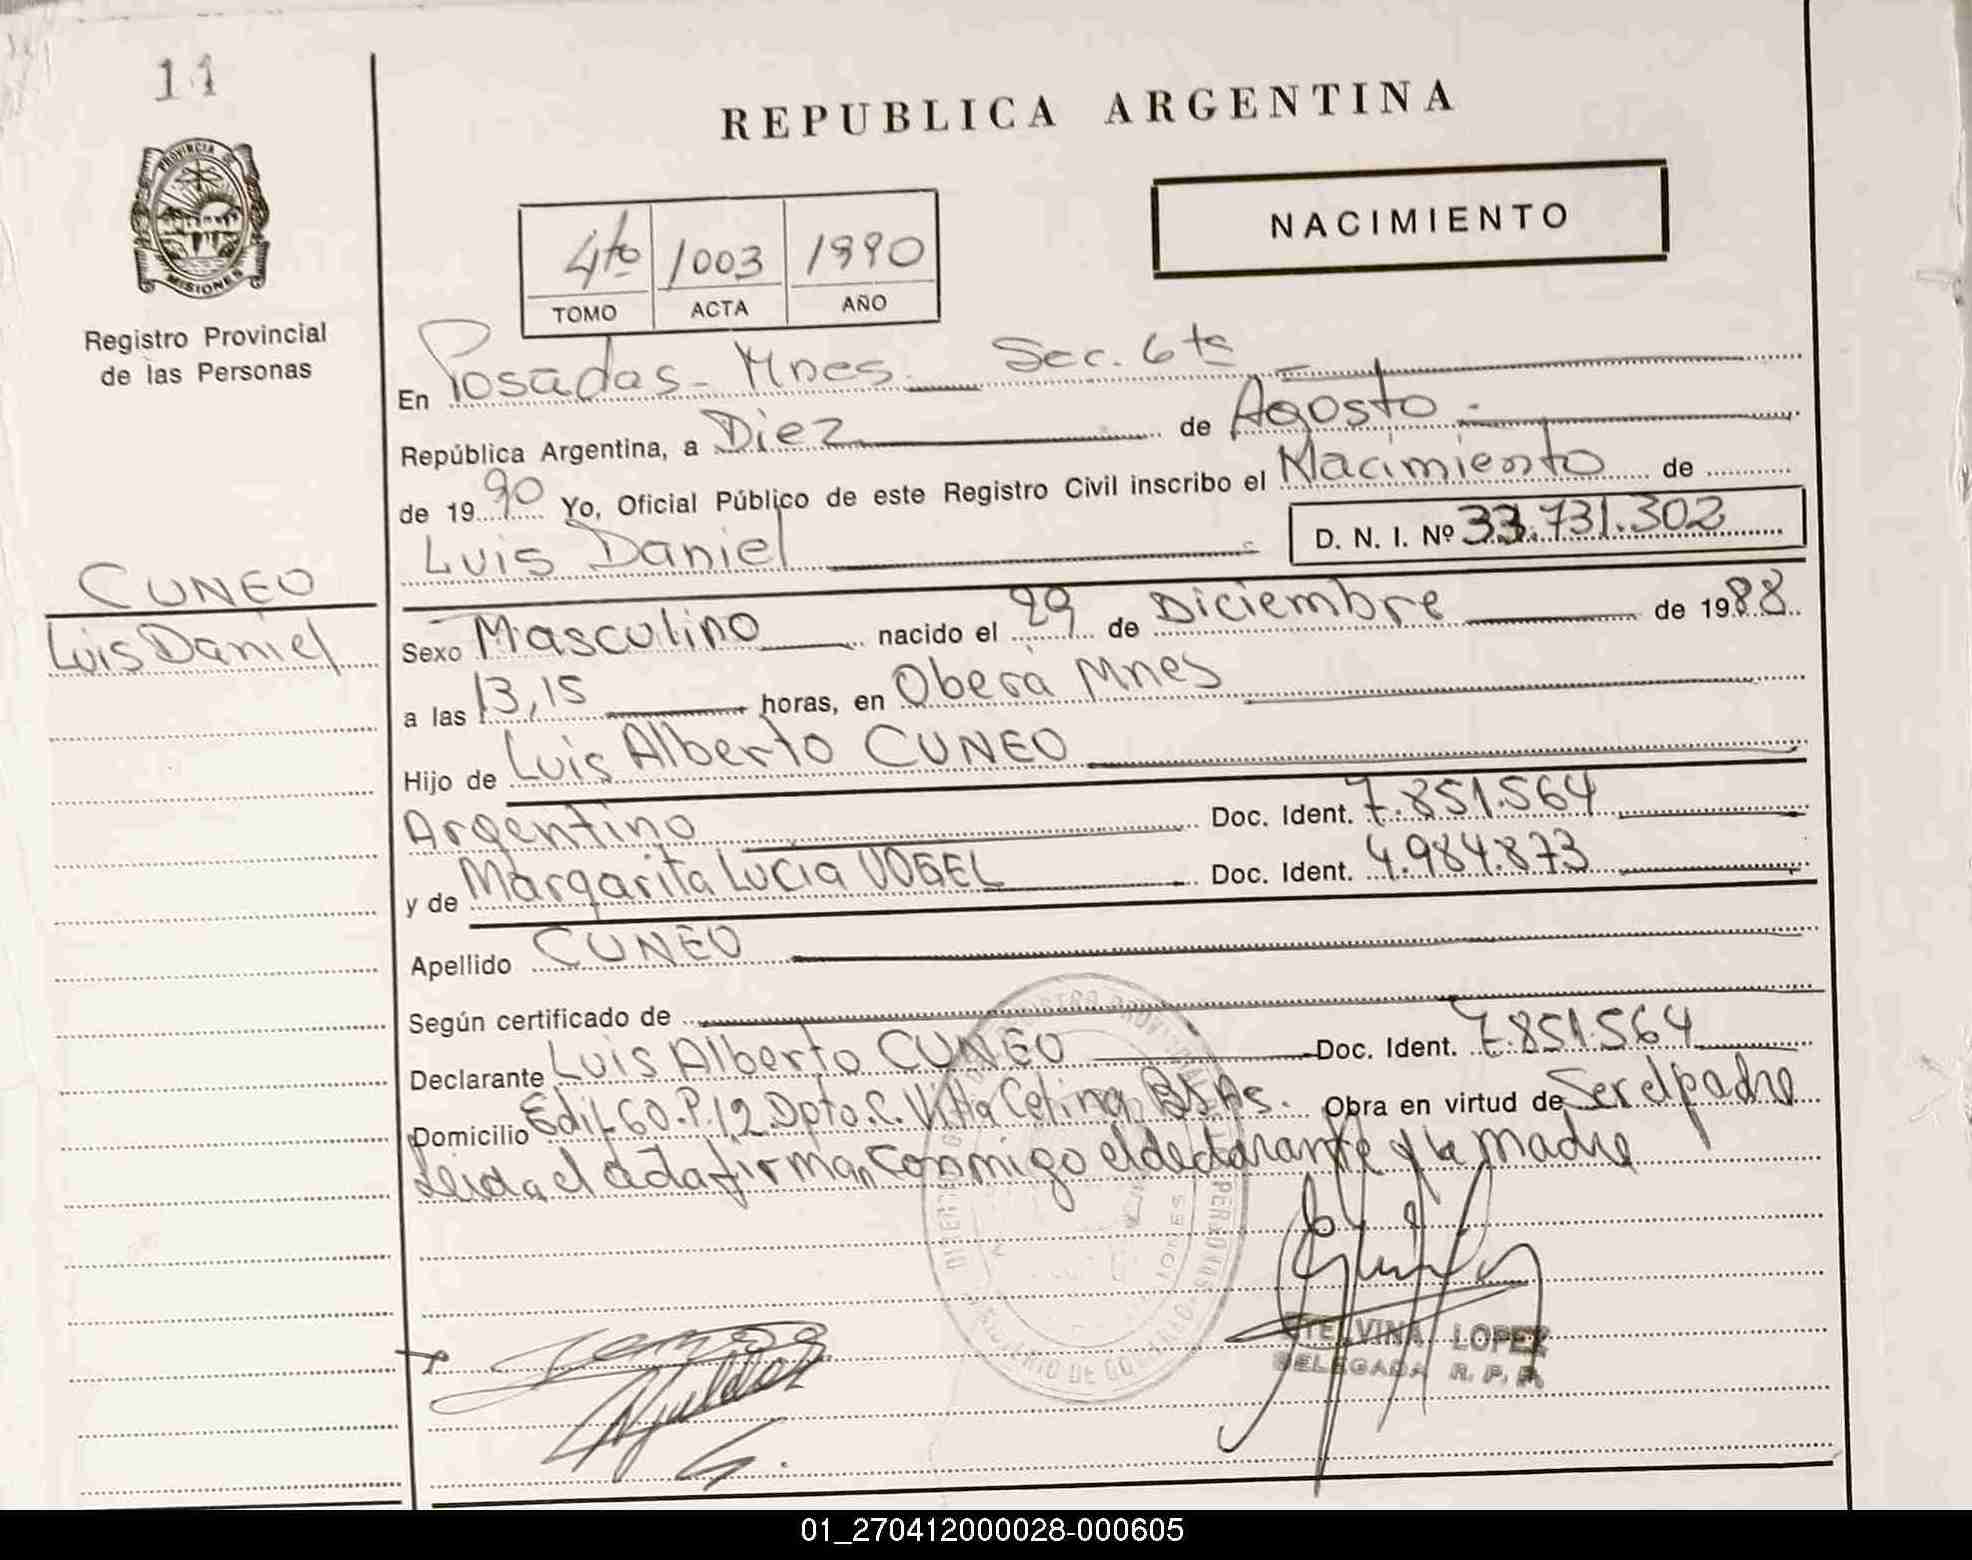 11
REPUBLICA ARGENTINA
PROVINCIA DE
MISIONES
NACIMIENTO
4to 1003 1990
TOMO ACTA AÑO
Registro Provincial
de las Personas
En Posadas - Mnes. Sec. 6ta
República Argentina, a Diez de Agosto.-
de 1990 Yo, Oficial Público de este Registro Civil inscribo el Nacimiento de
Luis Daniel D. N. I. Nº 33.731.302
CUNEO
Luis Daniel
Sexo Masculino nacido el 29 de Diciembre de 1988
a las 13,15 horas, en Oberá Mnes
Hijo de Luis Alberto CUNEO
Argentino Doc. Ident. 7.851.564
y de Margarita Lucia VOGEL Doc. Ident. 4.984.873
Apellido CUNEO
Según certificado de
Declarante Luis Alberto CUNEO Doc. Ident. 7.851.564
Domicilio Edif. 60.P.12.Dpto.C. Villa Celina BsAs. Obra en virtud de Ser el padre
Leida el acta firman conmigo el declarante y la madre
TELVINA LOPEZ
DELEGADA R. P. P.
01_270412000028-000605